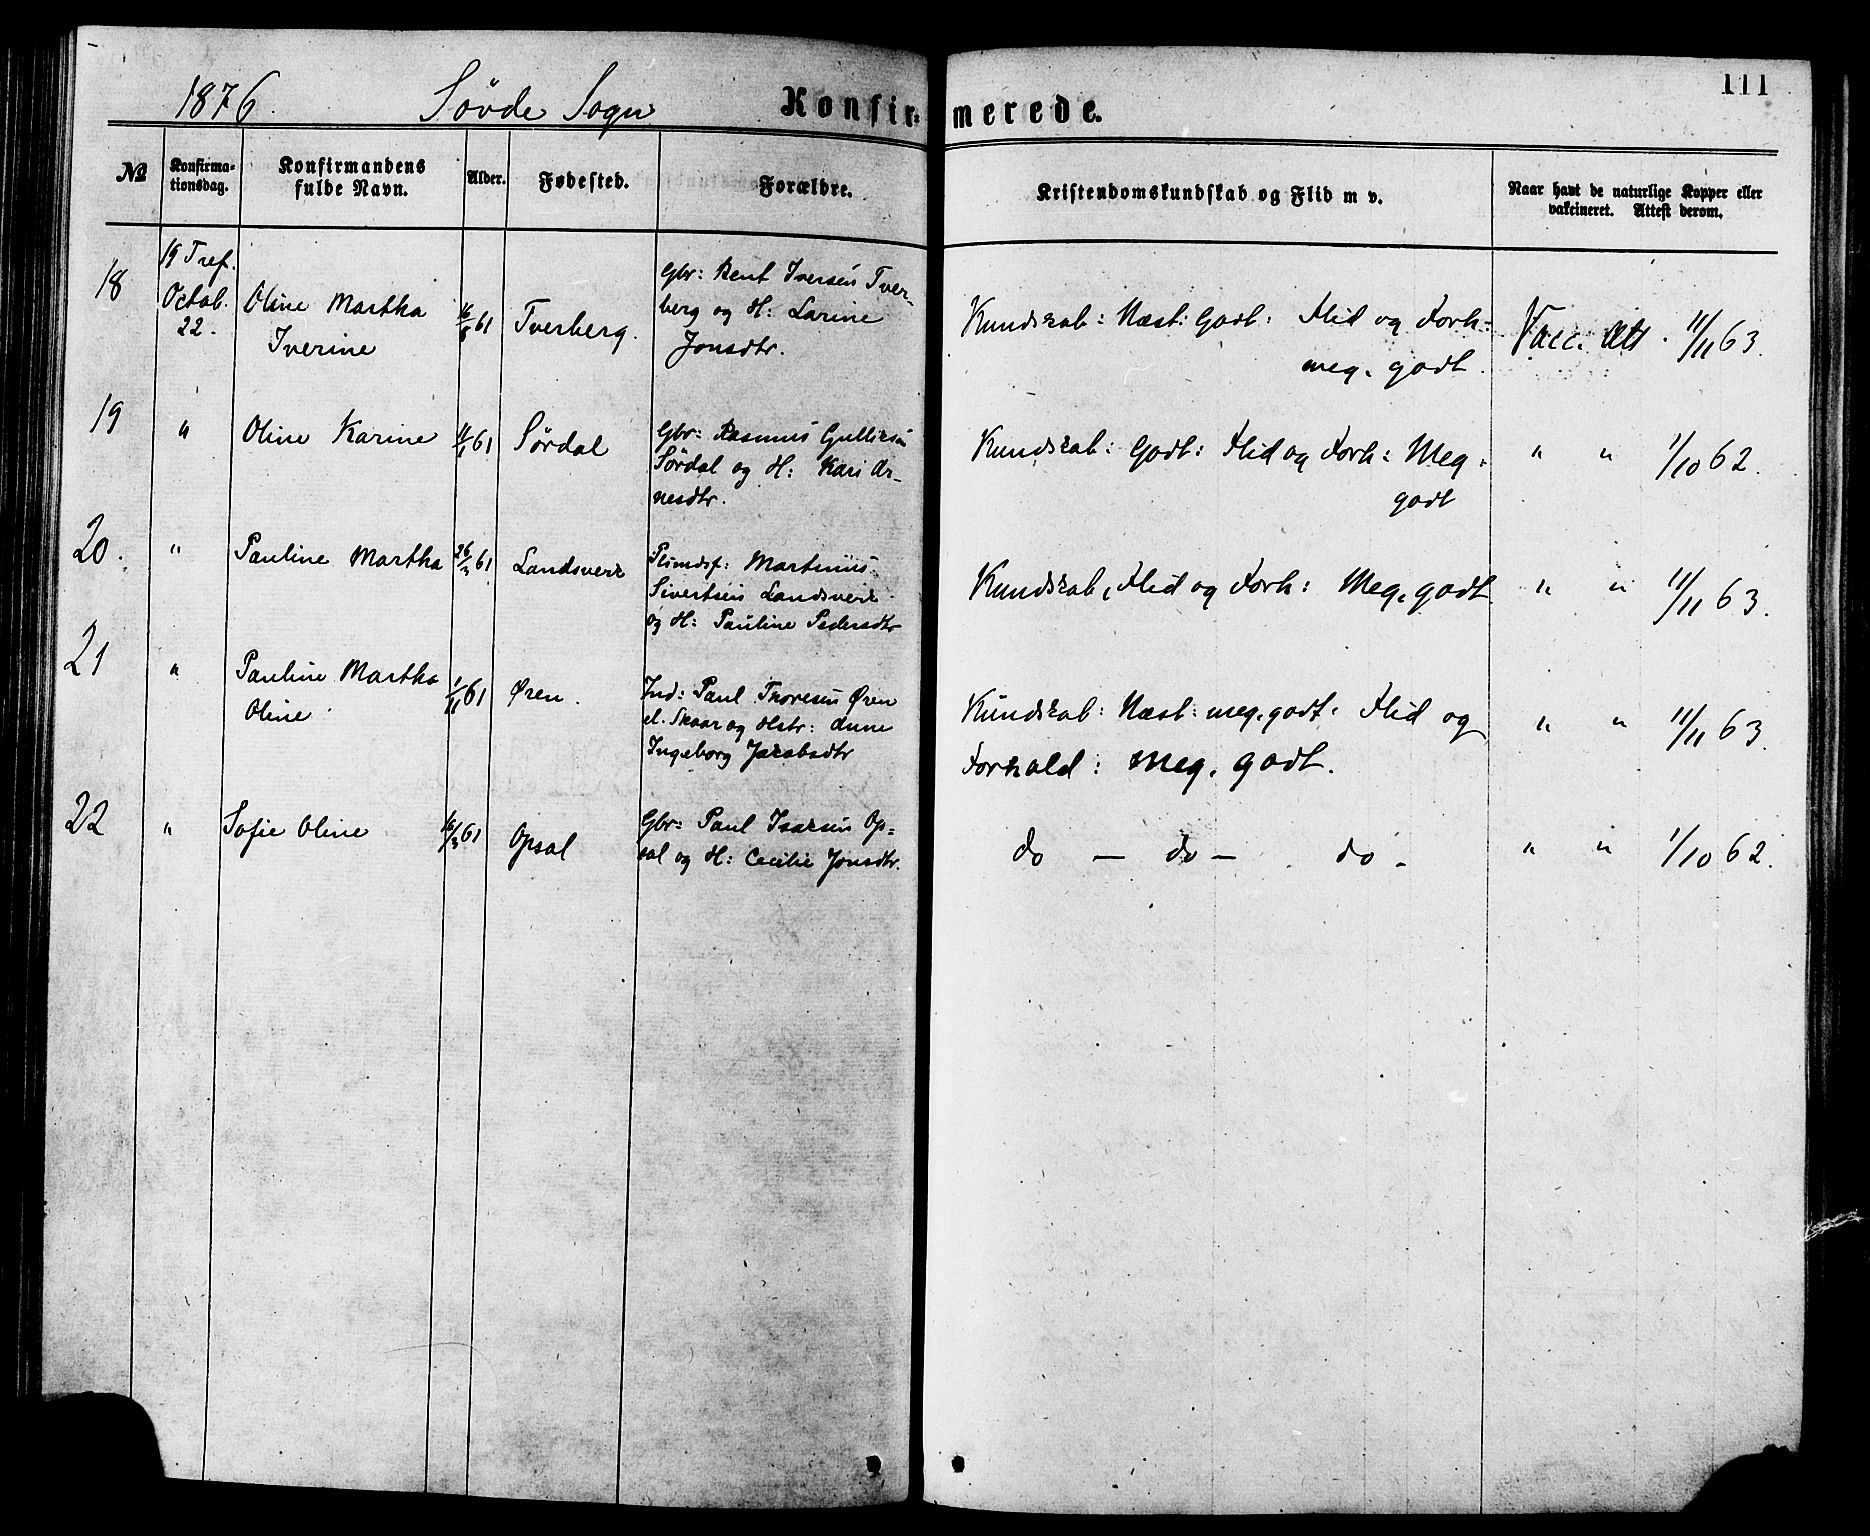 111
1876. Søvde Sogn Konfir- merede.
№ Konfirma- tionsdag. Konfirmandens fulde Navn. Alder. Fødested. Forældre. Kristendomskundskab og Flid m v. Naar havt de naturlige Kopper eller vakcineret. Attest derom.
19 Tref. Gbr: Bent Iversen Tver-
18 Octob. Oline Martha 16/8 61 Tverberg. berg og H: Larine Kundskab: Næst: Godt: Flid og Forh: Vacc. Att. 11/11 63.
22. Iverine Jonsdtr. meg. godt.
19 " Oline Karine 11/1 61 Sørdal Gbr: Rasmus Gulliksen Kundskab: Godt: Flid og Forh: Meg. " " 1/10 62.
Sørdal og H: Kari Ar-
nesdtr. godt
20. " Pauline Martha 26/3 61 Landsverk Martinus Kundskab, Flid og Forh: Meg. godt " " 11/11 63.
Sivertsen Landsverk
og H: Pauline Pedersdtr
21 " Pauline Martha 1/11 61 Øren. Ind: Paul Thoresen Øren Kundskab: Næst: meg. godt. Flid og " " 11/11 63.
Oline el. Skaar og Hstr: Anne Forhold: meg. godt.
Ingeborg Jakobsdtr
22 " Sofie Oline 16/3 61 Opsal Gbr: Paul Isaksen Op- do — do — do - " " 1/10 62.
sal og H: Cecilie Jonsdtr.